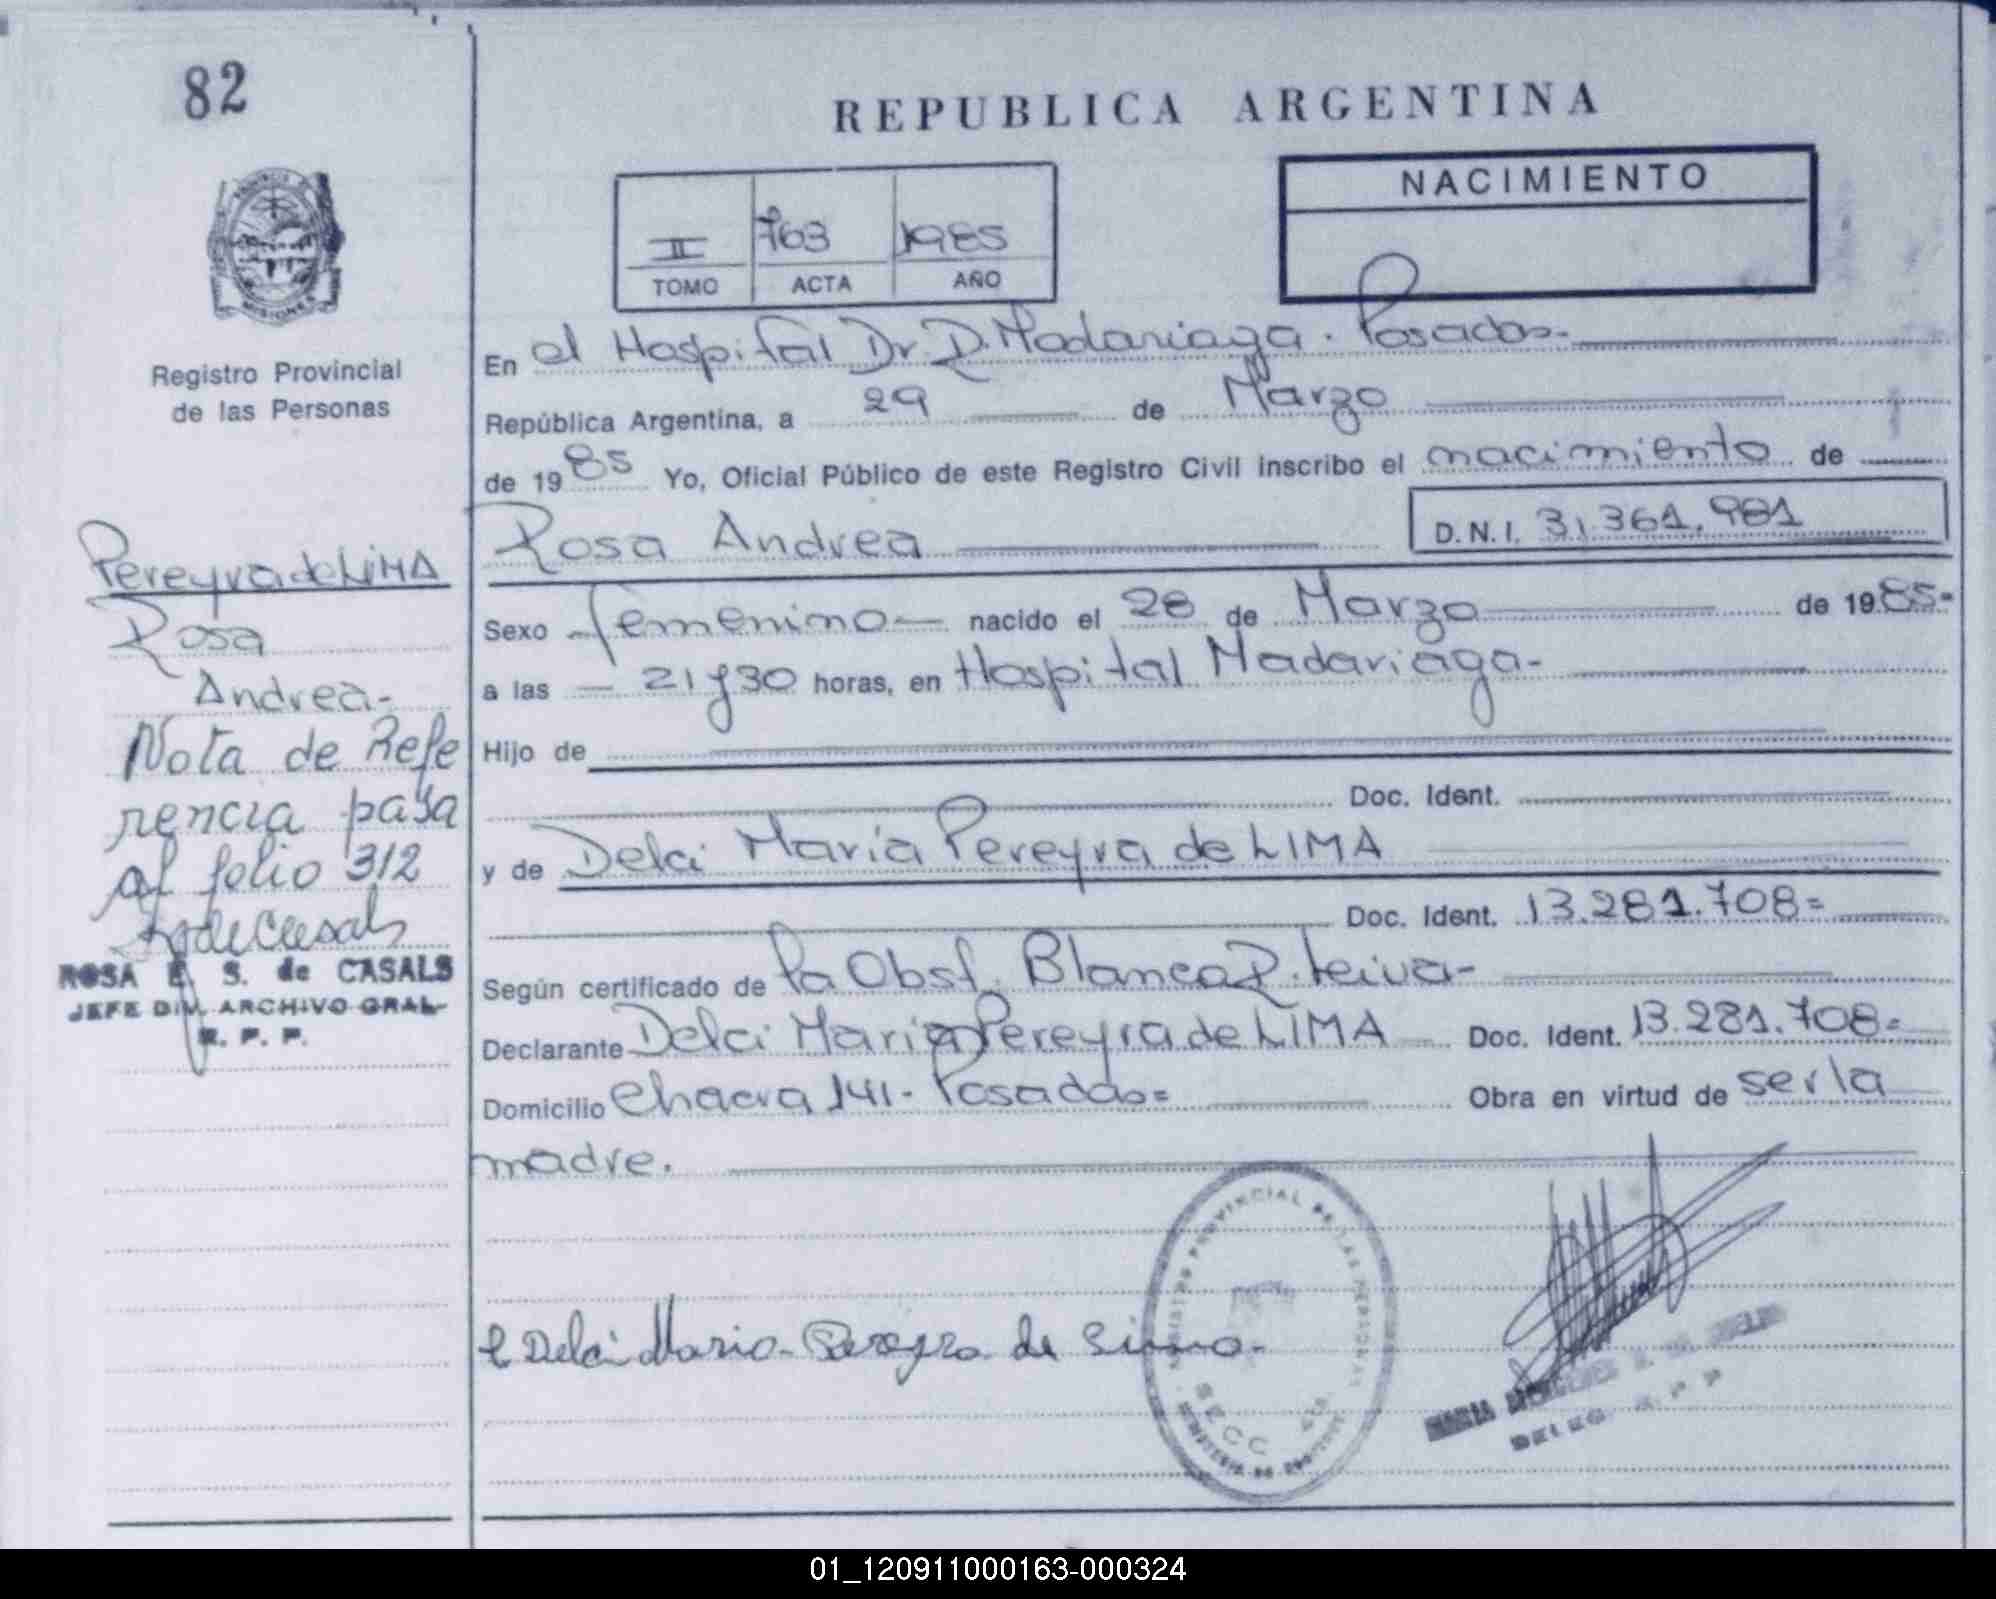 82
REPUBLICA ARGENTINA
NACIMIENTO
II 763 1985
TOMO ACTA AÑO
PROVINCIA DE
MISIONES
Registro Provincial
de las Personas
En el Hospital Dr. R. Madariaga. Posadas.
República Argentina, a 29 de Marzo
de 1985 Yo, Oficial Público de este Registro Civil inscribo el nacimiento de
Rosa Andrea D.N.I. 31.361.981
Sexo femenino nacido el 28 de Marzo de 1985.
a las 21 y 30 horas, en Hospital Madariaga.
Hijo de
Doc. Ident.
y de Delci María Pereyra de LIMA
Doc. Ident. 13.281.708=
Según certificado de la Obst. Blanca R. Leiva-
Declarante Delci Maria Pereyra de LIMA Doc. Ident. 13.281.708=
Domicilio Chacra 141- Posadas= Obra en virtud de ser la
madre.
Delci Maria Pereyra de Lima-
Pereyra de LIMA
Rosa
Andrea-
Nota de Refe
rencia pasa
al folio 312
ROSA E. S. de CASALS
JEFE DIV. ARCHIVO GRAL.
R. P. P.
REGISTRO PROVINCIAL DE LAS PERSONAS
SECC 4ta.
MINISTERIO DE GOBIERNO
MARIA
DELEG. R. P. P.
01_120911000163-000324